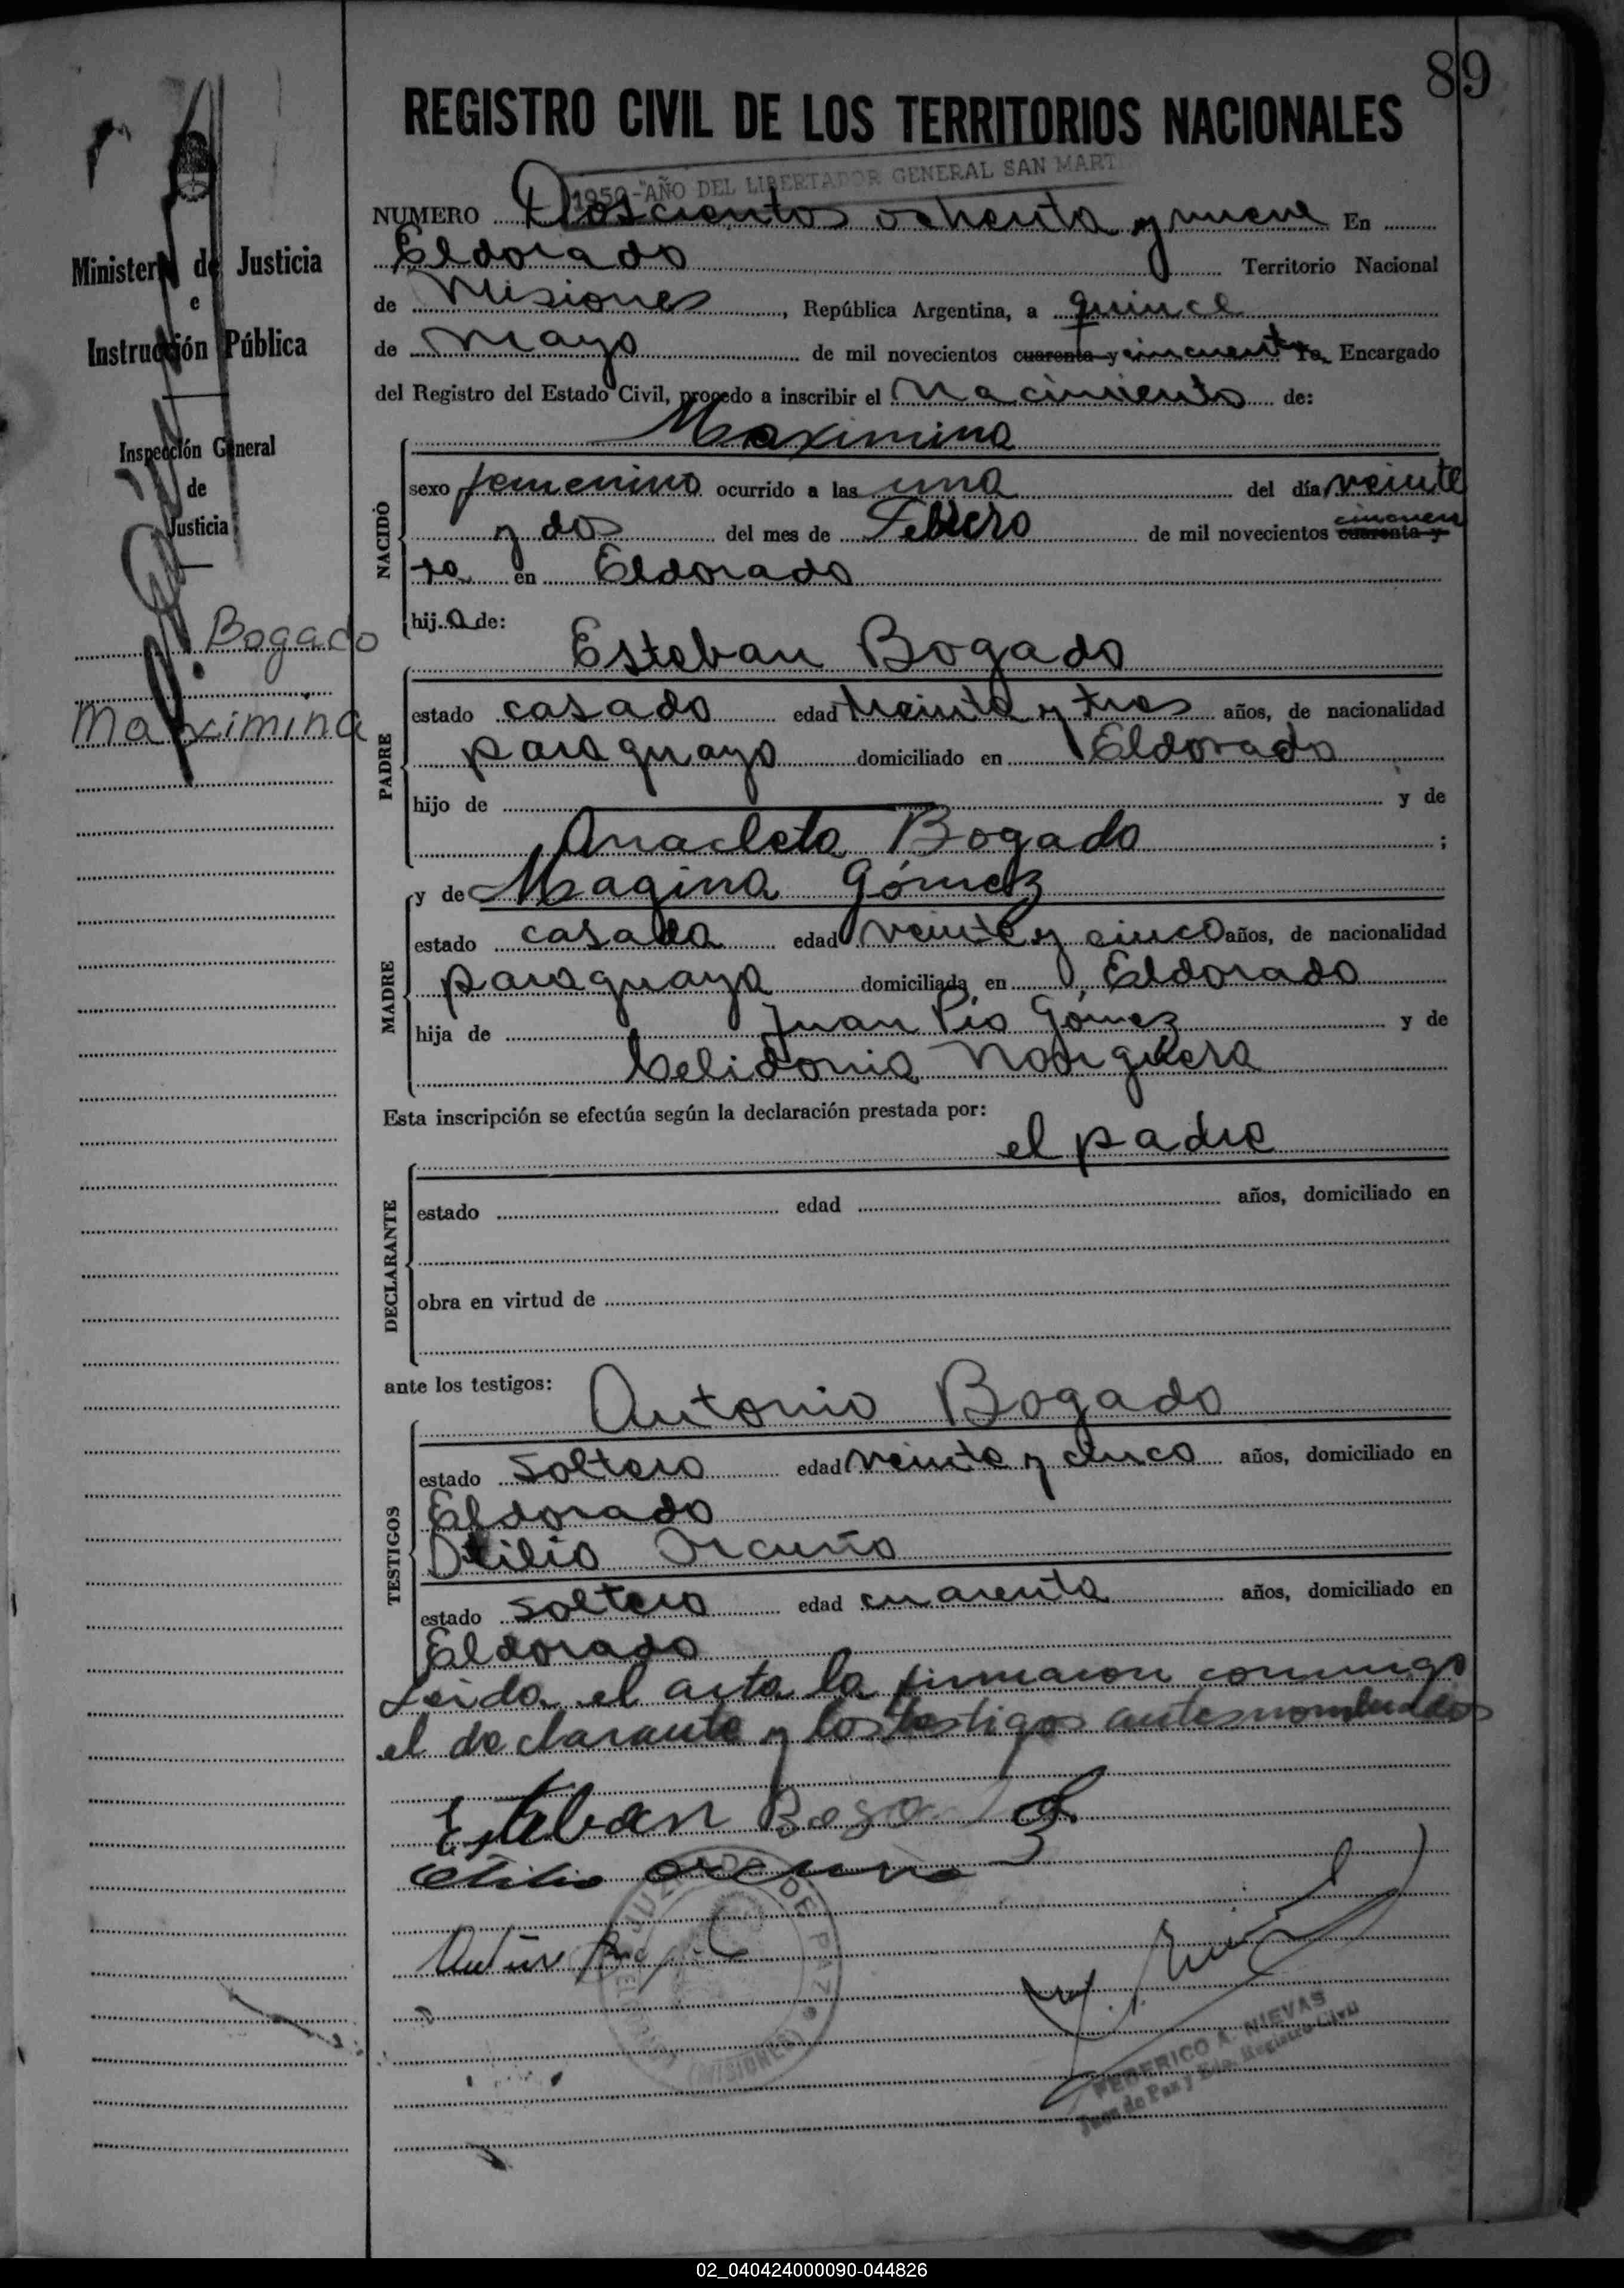 89
REGISTRO CIVIL DE LOS TERRITORIOS NACIONALES
1950-"AÑO DEL LIBERTADOR GENERAL SAN MART
NUMERO Doscientos ochenta y nueve En
Eldorado Territorio Nacional
de Misiones, República Argentina, a quince
de Mayo de mil novecientos cuarenta y cincuenta Yo, Encargado
del Registro del Estado Civil, procedo a inscribir el Nacimiento de:
Ministerio de Justicia
e
Instrucción Pública
Inspección General
de
Justicia
Bogado
Maximina
NACIDO
Maximina
sexo femenino ocurrido a las una del día veinte
y dos del mes de Febrero de mil novecientos cuarenta y cincuen
ta en Eldorado
hija de:
PADRE
Esteban Bogado
estado casado edad treinta y tres años, de nacionalidad
paraguaya domiciliado en Eldorado
hijo de y de
Anacleta Bogado ;
MADRE
y de Magina Gómez
estado casada edad veinte y cinco años, de nacionalidad
paraguaya domiciliada en Eldorado
hija de Juan Pío Gómez y de
Celidonia
Esta inscripción se efectúa según la declaración prestada por:
el padre
DECLARANTE
estado edad años, domiciliado en
obra en virtud de
ante los testigos:
TESTIGOS
Antonio Bogado
estado soltero edad veinte y cinco años, domiciliado en
Eldorado
Otilio Orcuño
estado soltero edad cuarenta años, domiciliado en
Eldorado
Leida el acta la firmaron conmigo
el declarante y los testigos antesnombrados
Esteban Bogado
Otilio Orcuño
JUZGADO DE PAZ
ELDORADO (MISIONES)
FEDERICO A. NIEVAS
Juez de Paz y Edo. Registro Civil
02_040424000090-044826